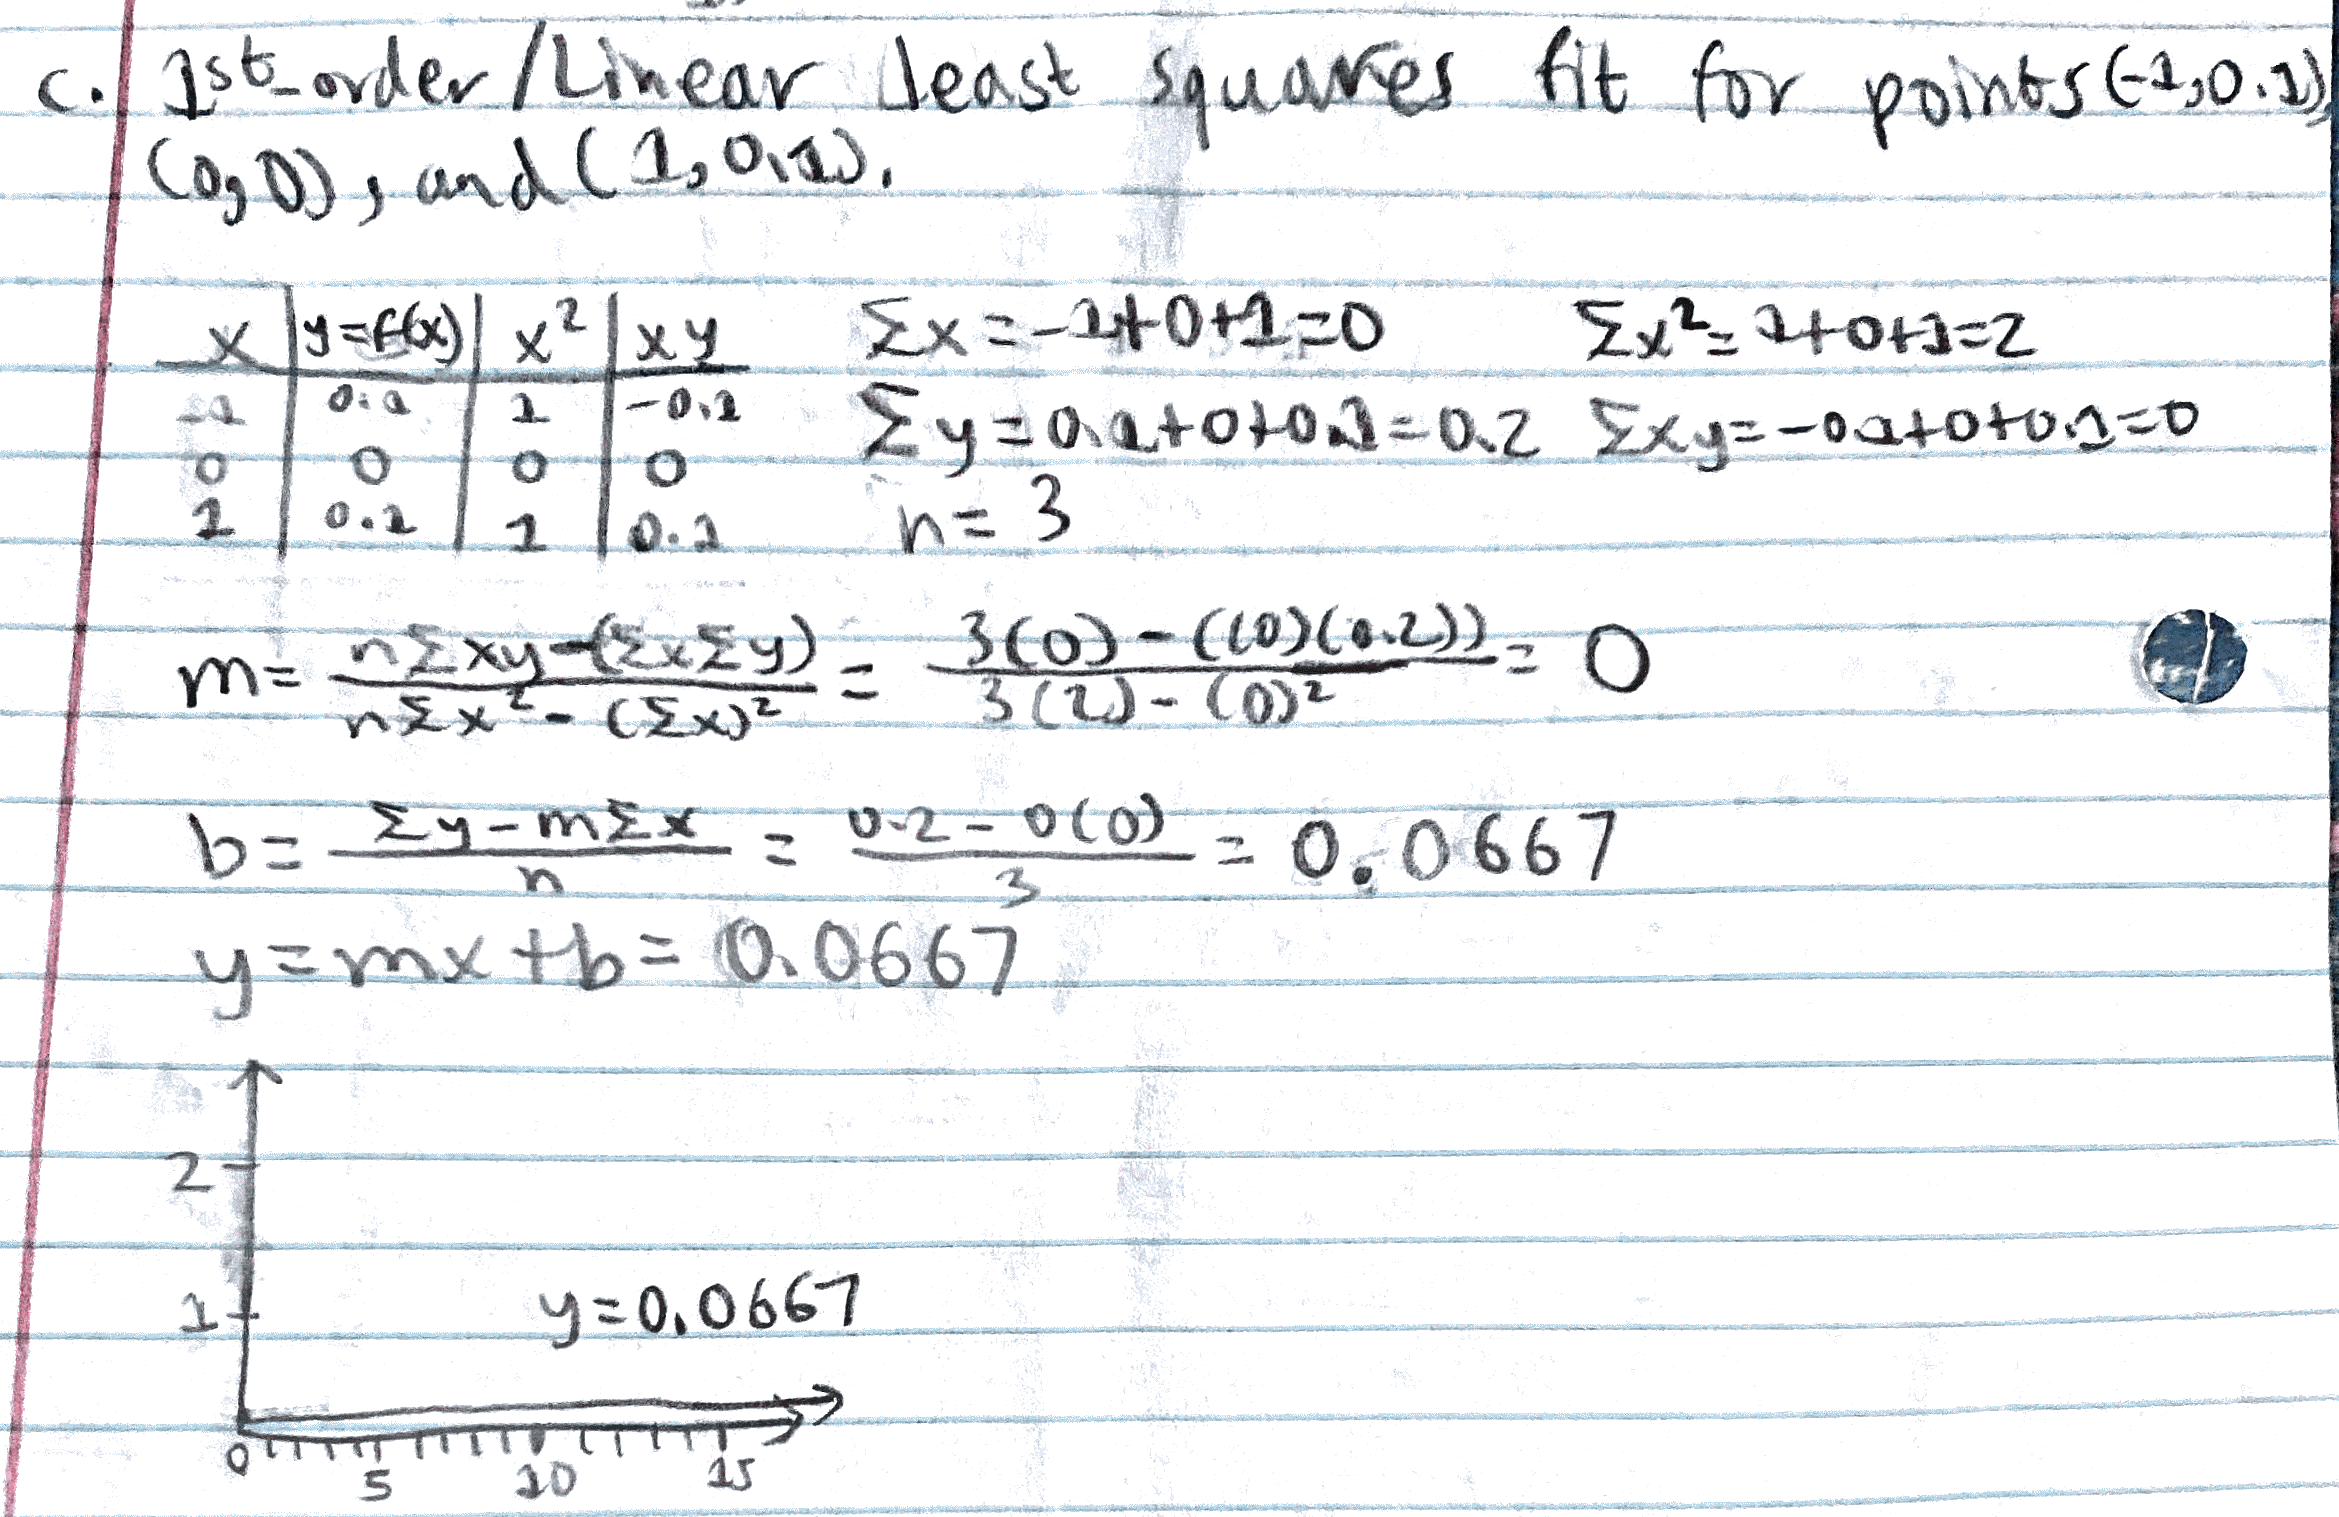 c. 1st-order/Linear least squares fit for points (-1,0.1),
(0,0), and (1,0.1).
x | y=f(x) | x² | xy
-1 | 0.1 | 1 | -0.1
0 | 0 | 0 | 0
1 | 0.1 | 1 | 0.1
Σx=-1+0+1=0 Σx²=1+0+1=2
Σy=0.1+0+0.1=0.2 Σxy=-0.1+0+0.1=0
n=3
m= (nΣxy-(ΣxΣy))/(nΣx²-(Σx)²) = (3(0)-((0)(0.2)))/(3(2)-(0)²) = 0
b= (Σy-mΣx)/n = (0.2-0(0))/3 = 0.0667
y=mx+b=0.0667
2
1
y=0.0667
0 5 10 15